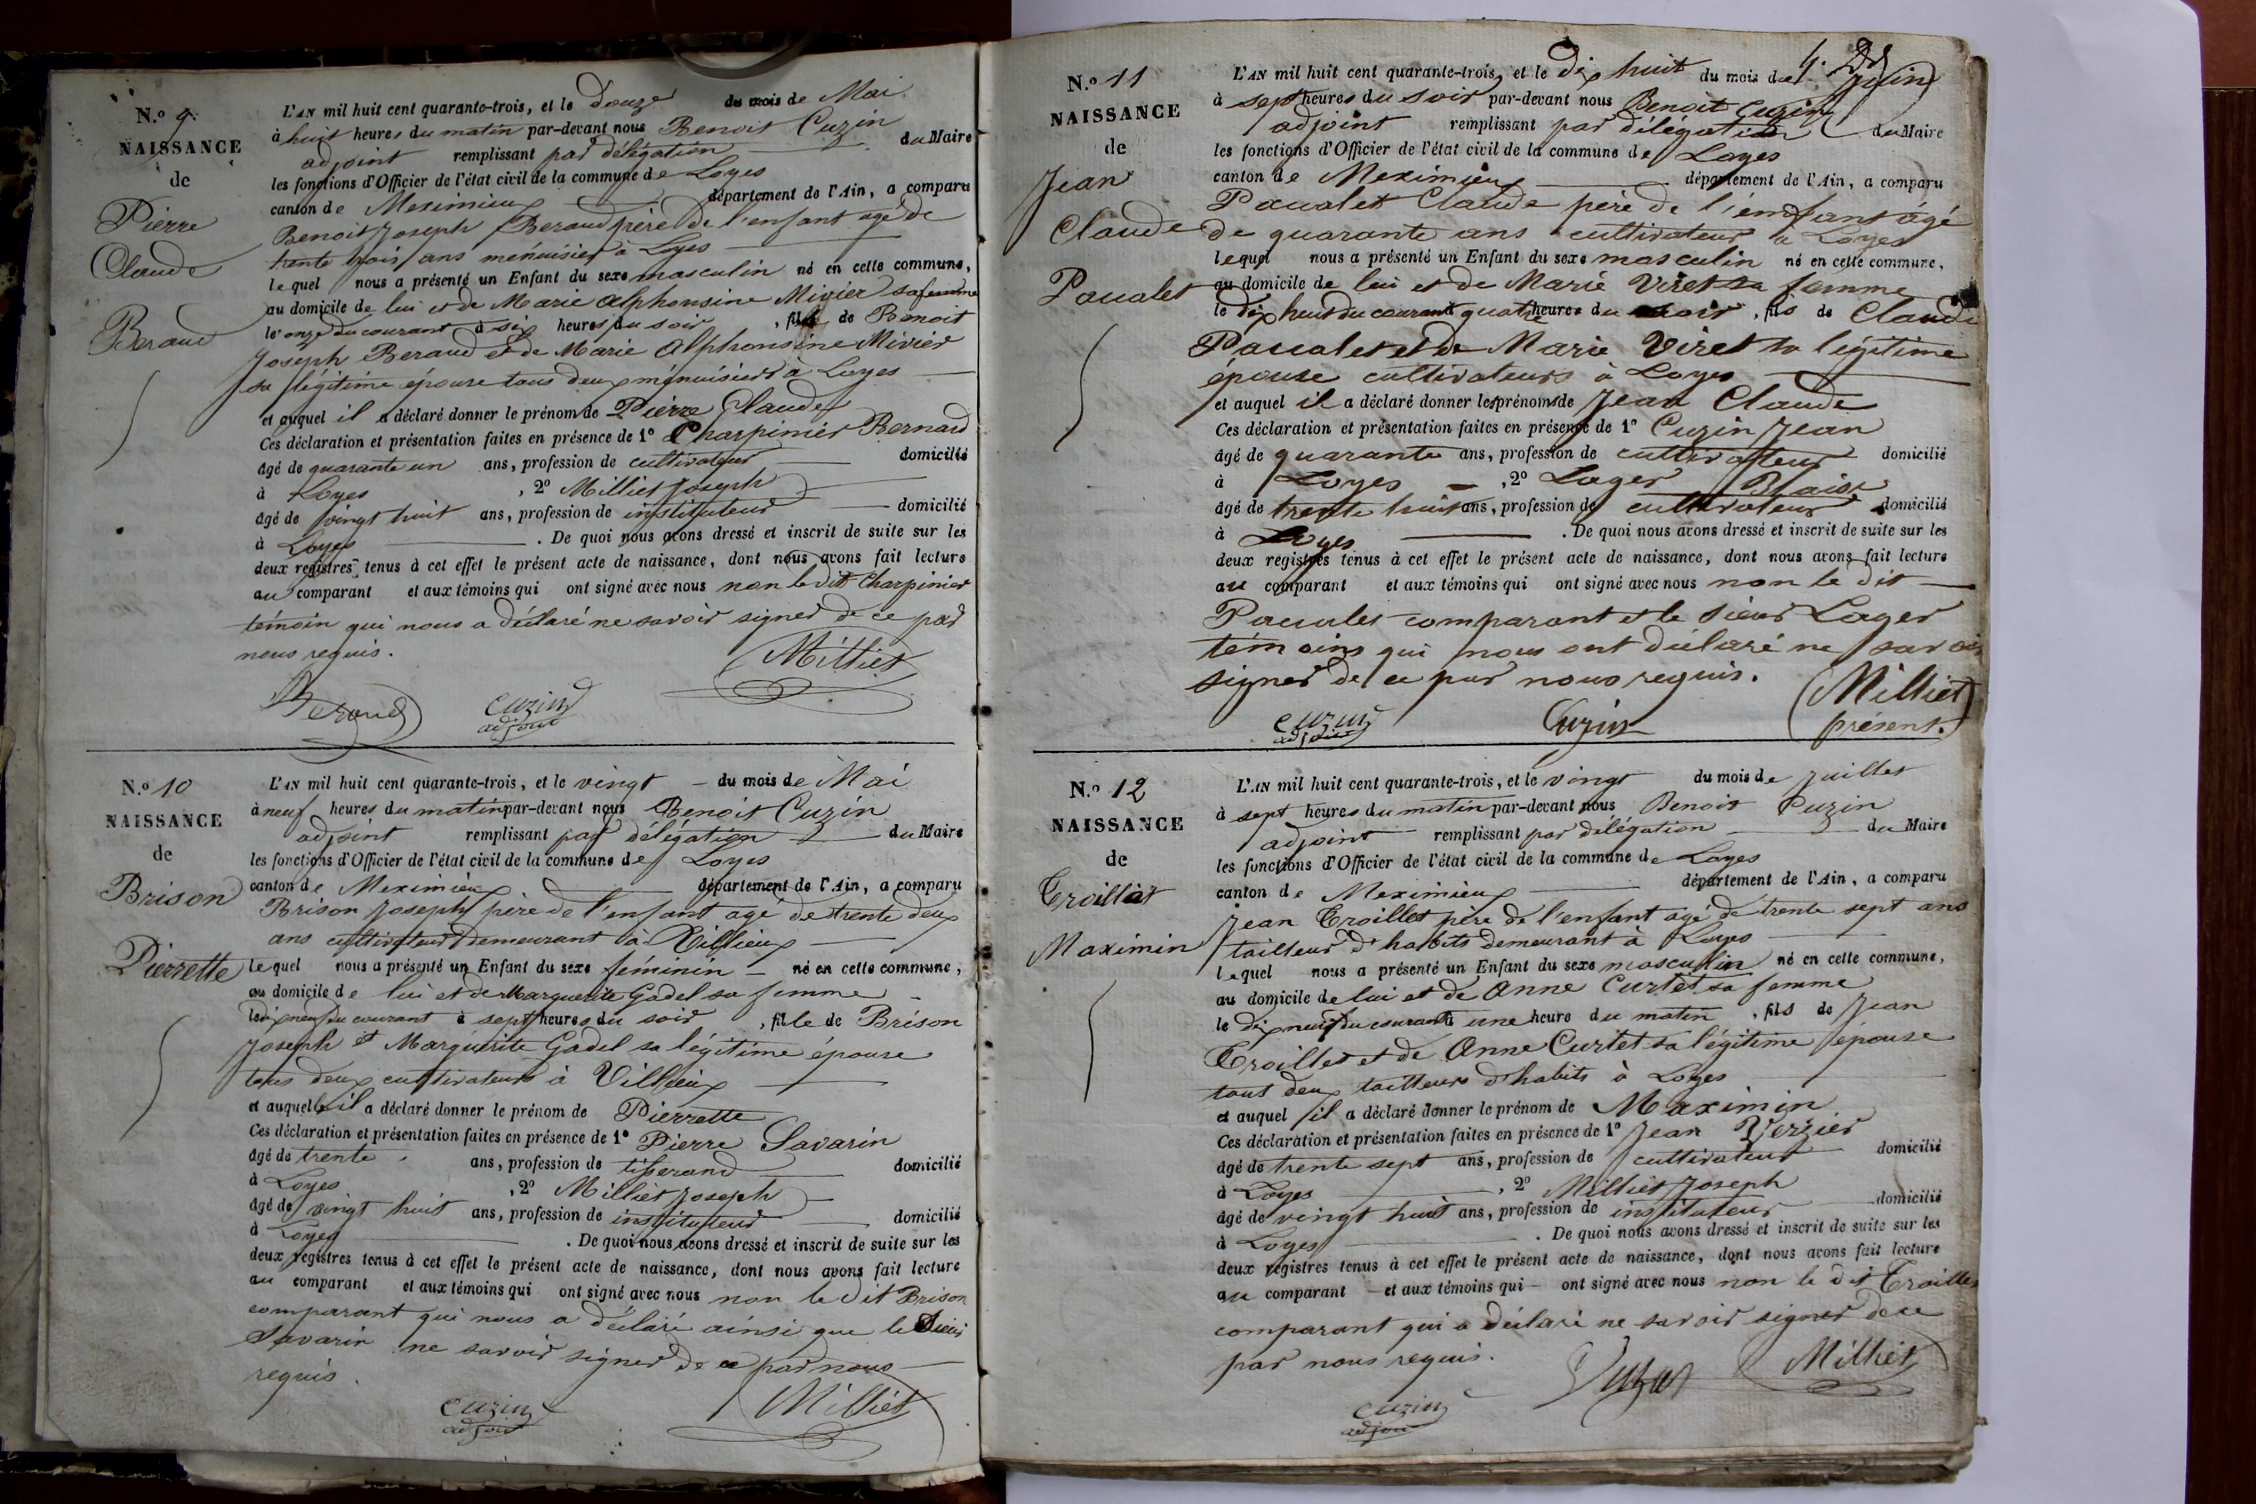 N.° 9.
NAISSANCE
de
Pierre
Claude
Beraud
L'AN mil huit cent quarante-trois, et le douze du mois de Mai
à huit heures du matin par-devant nous Benoit Cuzin
adjoint remplissant par délégation du Maire
les fonctions d'Officier de l'état civil de la commune de Loyes
canton de Meximieux département de l'Ain, a comparu
Benoit Joseph Beraud père de l'enfant agé de
trente trois ans ménuisier à Loyes
lequel nous a présenté un Enfant du sexe masculin né en cette commune,
au domicile de lui et de Marie Alphonsine Mivier sa femme
le onze du courant à six heures du soir, fils de Benoit
Joseph Beraud et de Marie Alphonsine Mivier
sa légitime épouse tous deux ménuisiers à Loyes
et auquel il a déclaré donner le prénom de Pierre Claude
Ces déclaration et présentation faites en présence de 1° Charpinier Bernard
âgé de quarante un ans, profession de cultivateur domicilié
à Loyes, 2° Milliet Joseph
âgé de vingt huit ans, profession de instituteur domicilié
à Loyes. De quoi nous avons dressé et inscrit de suite sur les
deux registres tenus à cet effet le présent acte de naissance, dont nous avons fait lecture
au comparant et aux témoins qui ont signé avec nous non le dit Charpinier
témoin qui nous a déclaré ne savoir signer de ce par
nous requis.
Milliet
Beraud
Cuzin
adjoint
N.° 10
NAISSANCE
de
Brison
Pierrette
L'AN mil huit cent quarante-trois, et le vingt du mois de Mai
à neuf heures du matin par-devant nous Benoit Cuzin
adjoint remplissant par délégation du Maire
les fonctions d'Officier de l'état civil de la commune de Loyes
canton de Meximieux département de l'Ain, a comparu
Brison Joseph père de l'enfant agé de trente deux
ans cultivateur demeurant à Villieux
lequel nous a présenté un Enfant du sexe féminin né en cette commune,
au domicile de lui et de Marguerite Gadel sa femme
le dix neuf du courant à sept heures du soir, fille de Brison
Joseph et Marguerite Gadel sa légitime épouse
tous deux cultivateurs à Villieux
et auquel il a déclaré donner le prénom de Pierrette
Ces déclaration et présentation faites en présence de 1° Pierre Savarin
âgé de trente ans, profession de tisserand domicilié
à Loyes, 2° Milliet Joseph
âgé de vingt huit ans, profession de instituteur domicilié
à Loyes. De quoi nous avons dressé et inscrit de suite sur les
deux registres tenus à cet effet le présent acte de naissance, dont nous avons fait lecture
au comparant et aux témoins qui ont signé avec nous non le dit Brison
comparant qui nous a déclaré ainsi que le Sieur
Savarin ne savoir signer de ce par nous
requis.
Cuzin
adjoint
Milliet
N.° 11
NAISSANCE
de
Jean
Claude
Pacalet
L'AN mil huit cent quarante-trois, et le dix huit du mois de Juin
à sept heures du soir par-devant nous Benoit Cuzin
adjoint remplissant par délégation du Maire
les fonctions d'Officier de l'état civil de la commune de Loyes
canton de Meximieux département de l'Ain, a comparu
Pacalet Claude père de l'enfant âgé
de quarante ans cultivateur à Loyes
lequel nous a présenté un Enfant du sexe masculin né en cette commune,
au domicile de lui et de Marie Viret sa femme
le dix huit du courant quatre heures du soir, fils de Claude
Pacalet et de Marie Viret sa légitime
épouse cultivateurs à Loyes
et auquel il a déclaré donner les prénoms de Jean Claude
Ces déclaration et présentation faites en présence de 1° Cuzin Jean
âgé de quarante ans, profession de cultivateur domicilié
à Loyes, 2° Lager Blaise
âgé de trente huit ans, profession de cultivateur domicilié
à Loyes. De quoi nous avons dressé et inscrit de suite sur les
deux registres tenus à cet effet le présent acte de naissance, dont nous avons fait lecture
au comparant et aux témoins qui ont signé avec nous non le dit
Pacalet comparant et le sieur Lager
témoins qui nous ont déclaré ne savoir
signer de ce par nous requis.
Cuzin
adjoint
Cuzin
Milliet
présent.
N.° 12
NAISSANCE
de
Troillet
Maximin
L'AN mil huit cent quarante-trois, et le vingt du mois de Juillet
à sept heures du matin par-devant nous Benoit Cuzin
adjoint remplissant par délégation du Maire
les fonctions d'Officier de l'état civil de la commune de Loyes
canton de Meximieux département de l'Ain, a comparu
Jean Troillet père de l'enfant agé de trente sept ans
tailleur d'habits demeurant à Loyes
lequel nous a présenté un Enfant du sexe masculin né en cette commune,
au domicile de lui et de Anne Curtet sa femme
le dix neuf du courant à une heure du matin, fils de Jean
Troillet et de Anne Curtet sa légitime épouse
tous deux tailleurs d'habits à Loyes
et auquel il a déclaré donner le prénom de Maximin
Ces déclaration et présentation faites en présence de 1° Jean Verzier
âgé de trente sept ans, profession de cultivateur domicilié
à Loyes, 2° Milliet Joseph
âgé de vingt huit ans, profession de instituteur domicilié
à Loyes. De quoi nous avons dressé et inscrit de suite sur les
deux registres tenus à cet effet le présent acte de naissance, dont nous avons fait lecture
au comparant et aux témoins qui ont signé avec nous non le dit Troillet
comparant qui a déclaré ne savoir signer de ce
par nous requis.
Milliet
Cuzin
adjoint